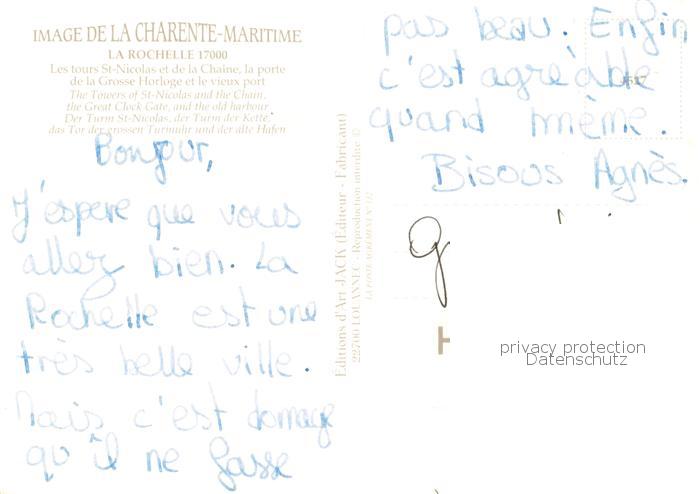 IMAGE DE LA CHARENTE-MARITIME
LA ROCHELLE 17000
Les tours St-Nicolas et de la Chaîne, la porte
de la Grosse Horloge et le vieux port
The Towers of St-Nicolas and the Chain,
the Great Clock Gate, and the old harbour
Der Turm St-Nicolas, der Turm der Kette,
das Tor der grossen Turmuhr und der alte Hafen
Bonjour,
J'espere que vous
allez bien. La
Rochelle est une
très belle ville.
Mais c'est domage
qu'il ne fasse
pas beau. Enfin
c'est agréable
quand mème.
Bisous Agnès.
Editions d'Art JACK (Éditeur - Fabricant)
22700 LOUANNEC - Reproduction interdite ©
privacy protection
Datenschutz